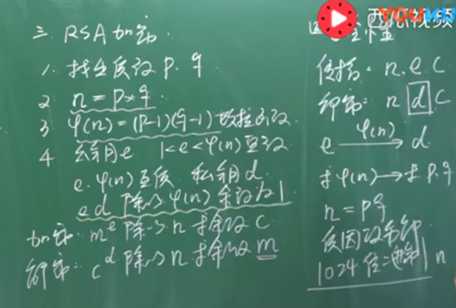 三. RSA加密.
1. 找出质数 p. q
2 n = p×q
3 φ(n)=(p-1)(q-1) 欧拉函数
4 公钥e 1<e<φ(n) 互质
e. φ(n)互质 私钥d.
ed 除以 φ(n) 余数为1
加密: m^e 除以 n 求余数 c
解密: c^d 除以 n 求余数 m
传播: n. e c
解密: n d c
e φ(n)→ d
求φ(n)→求p.q
n = pq
质因数分解
1024位二进制 n
西瓜视频